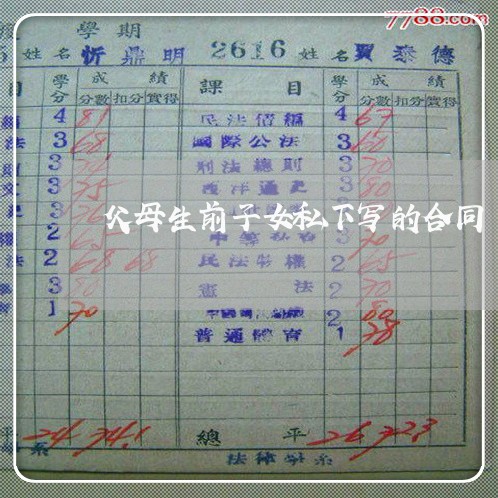 7788.com
學期
姓名 忻鼎明 2616 姓名 賈泰德
目 學分 成績 課目 學分 成績
分數 扣分 實得 分數 扣分 實得
4 81 民法債編 4 67
法 3 68 國際公法 3 60
3 刑法總則 3 70
3 75 西洋通史 3 80
父母生前子女私下写的合同
2 65 3 70
法 2 68 68 民法物權 2 65
3 80 憲法 2 70
1 70 2 80
普通體育 1 78
平 24 74.1 總平 26 72.3
系 法律學系